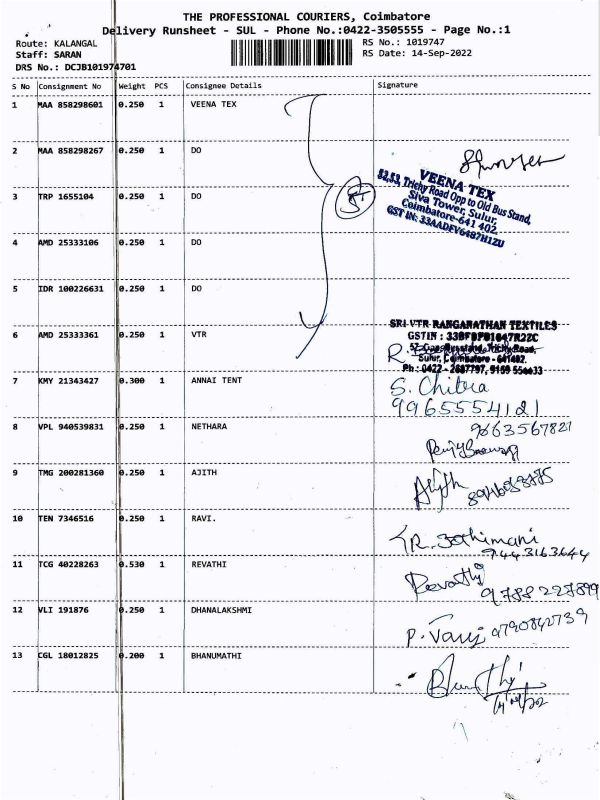 THE PROFESSIONAL COURIERS, Coimbatore
Delivery Runsheet - SUL - Phone No.:0422-3505555 - Page No.:1
Route: KALANGAL RS No.: 1019747
Staff: SARAN RS Date: 14-Sep-2022
DRS No.: DCJB101974701
S No Consignment No Weight PCS Consignee Details Signature
1 MAA 858298601 0.250 1 VEENA TEX
2 MAA 858298267 0.250 1 DO
VEENA TEX
52,53, Trichy Road Opp to Old Bus Stand,
Siva Tower, Sulur,
Coimbatore-641 402.
GST IN: 33AADFV6487H1ZU
3 TRP 1655104 0.250 1 DO
4 AMD 25333106 0.250 1 DO
5 IDR 100226631 0.250 1 DO
SRI VTR RANGANATHAN TEXTILES
6 AMD 25333361 0.250 1 VTR
Sulur, Coimbatore - 641402.
7 KMY 21343427 0.300 1 ANNAI TENT S. Chitra
9965554121
8 VPL 940539831 0.250 1 NETHARA 9663567821
9 TMG 200281360 0.250 1 AJITH Ajith
10 TEN 7346516 0.250 1 RAVI. R. Jothimani
9443163644
11 TCG 40228263 0.530 1 REVATHI Revathi
9788227899
12 VLI 191876 0.250 1 DHANALAKSHMI 9790842739
13 CGL 18012825 0.200 1 BHANUMATHI